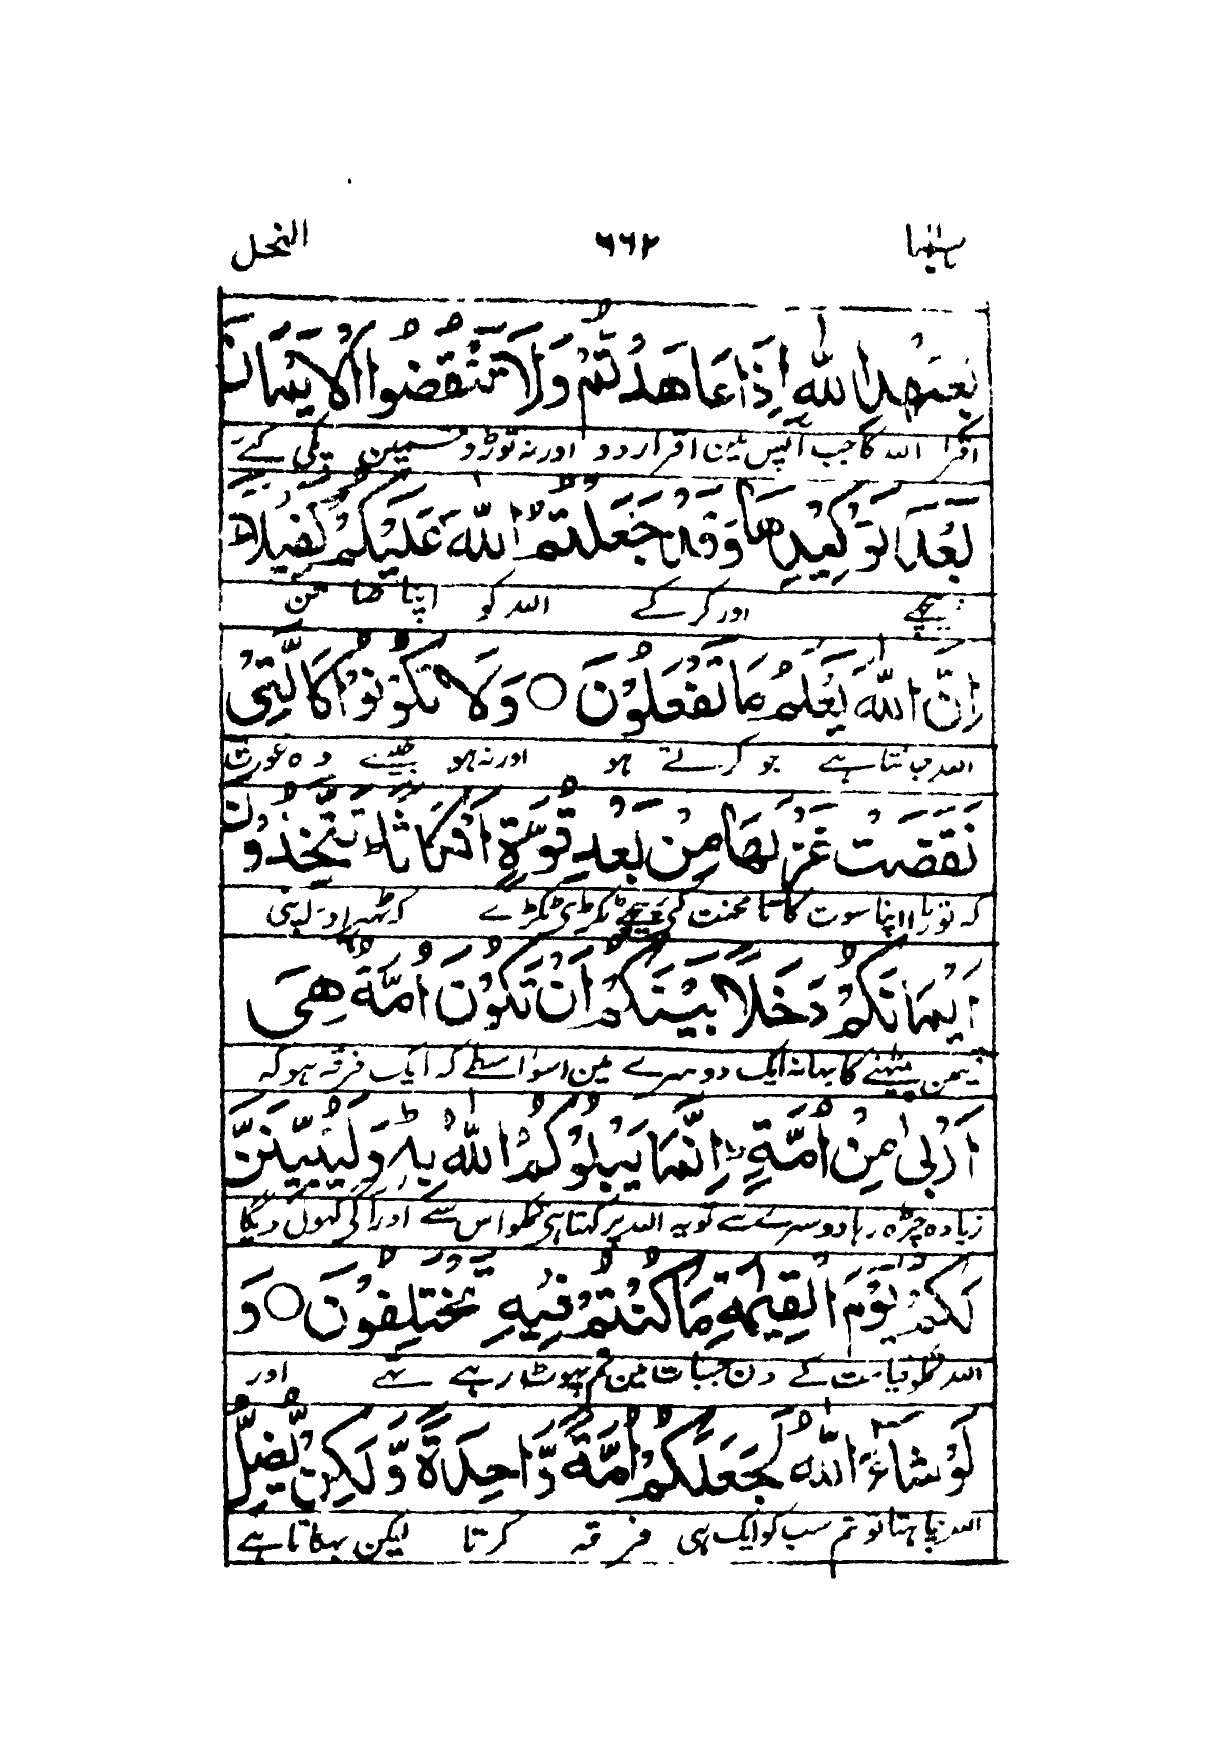 النحل ٦٦٢ ربما
بِعَهْدِ اللّٰهِ اِذَا عَاهَدْتُّمْ وَلَا تَنْقُضُوا الْاَيْمَانَ
اقرار اللہ کا جب آپس مین اقرار دو اور نہ توڑو قسمین پکی کئے
بَعْدَ تَوْكِيْدِهَا وَقَدْ جَعَلْتُمُ اللّٰهَ عَلَيْكُمْ كَفِيْلًا ط
پیچھے اور کر کے اللہ کو اپنا ضامن
اِنَّ اللّٰهَ يَعْلَمُ مَا تَفْعَلُوْنَ ○ وَلَا تَكُوْنُوْا كَالَّتِيْ
اللہ جانتا ہے جو کرتے ہو اور نہ ہو جیسے وہ عورت
نَقَضَتْ غَزْلَهَا مِنْ بَعْدِ قُوَّةٍ اَنْكَاثًا ط تَتَّخِذُوْنَ
کہ توڑا اپنا سوت کاتا محنت کئے پیچھے ٹکڑے ٹکڑے کہ ٹھہراؤ اپنی
اَيْمَانَكُمْ دَخَلًا بَيْنَكُمْ اَنْ تَكُوْنَ اُمَّةٌ هِيَ
پیٹھنے کا بہانہ ایک دوسرے مین اسواسطے کہ ایک فرقہ ہو کہ
اَرْبٰى مِنْ اُمَّةٍ ط اِنَّمَا يَبْلُوْكُمُ اللّٰهُ بِهٖ ط وَلَيُبَيِّنَنَّ
زیادہ چڑہ رہا دوسرے سے تو یہ اللہ پرکہتا ہی تمکو اس سے اور آگے کہول دیگا
لَكُمْ يَوْمَ الْقِيٰمَةِ مَا كُنْتُمْ فِيْهِ تَخْتَلِفُوْنَ ○ وَ
اللہ تمکو قیامت کے دن جس بات مین تم پہوٹ رہے تہے اور
لَوْ شَآءَ اللّٰهُ لَجَعَلَكُمْ اُمَّةً وَّاحِدَةً وَّلٰكِنْ يُّضِلُّ
اللہ چاہتا تو تم سب کو ایک ہی فرقہ کرتا لیکن بہکاتا ہے